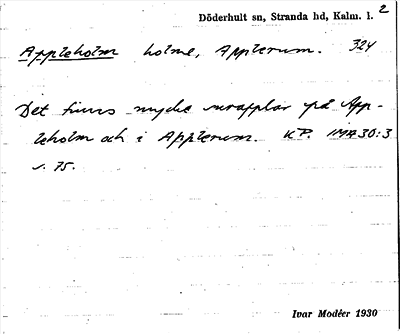 Döderhult sn, Stranda hd, Kalm. l. 2
Appleholm holme, Applerum. 324
Det finns mycke surapplar på App-
leholm och i Applerum. KP. IMA30:3
s. 75.
Ivar Modéer 1930